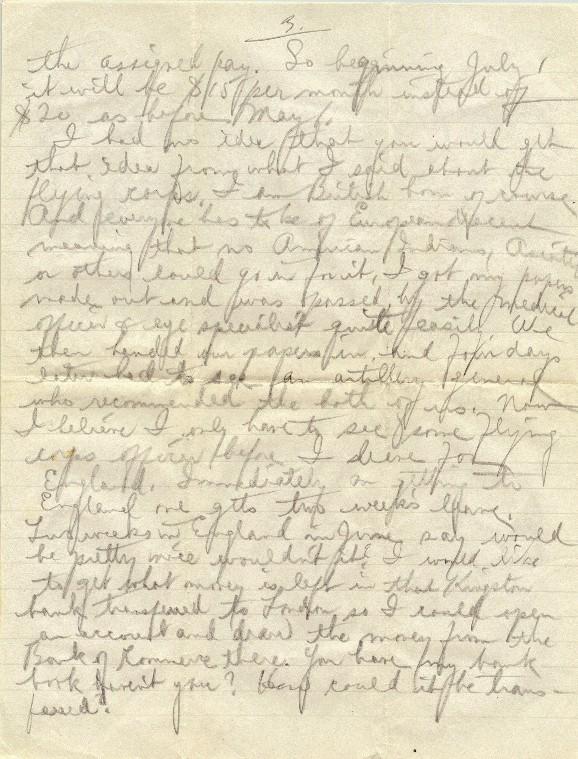 3.
the assigned pay. So beginning July 1
it will be $15 per month instead of
$20 as before May 1.
I had no idea that you would get
that idea from what I said about the
flying corps. I am British born of course.
And everyone has to be of European descent
meaning that no American Indians, Asiatics
or others could go in for it. I got my papers
made out and was passed by the medical
officer & eye specialist quite easily. We
then handed our papers in, and four days
later had to see an artillery general
who recommended the both of us. Now
I believe I only have to see some flying
corps officer before I leave for
England. Immediately on getting to
England one gets two weeks leave.
Two weeks in England in June say would
be pretty nice wouldn't it? I would like
to get what money is left in that Kingston
bank transferred to London so I could open
an account and draw the money from the
Bank of Commerce there. You have my bank
book haven't you? could it be trans-
ferred?